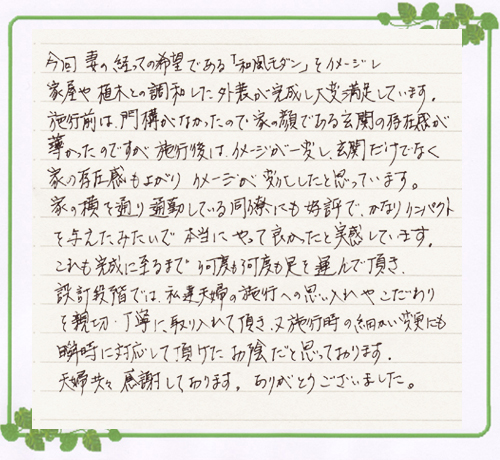 今回 妻の経っての希望である「和風モダン」をイメージし
家屋や植木との調和した外装が完成し大変満足しています。
施行前は、門構がなかったので家の顔である玄関の存在感が
薄かったのですが 施行後は、イメージが一変し、玄関だけでなく
家の存在感も上がり イメージが変化したと思っています。
家の横を通り通勤している同僚にも好評で、かなりインパクト
を与えたみたいで 本当に やって良かったと実感しています。
これも完成に至るまで 何度も何度も足を運んで頂き、
設計段階では、私達夫婦の施行への思い入れやこだわり
を親切・丁寧に取り入れて頂き、又施行時の細かい変更にも
瞬時に対応して頂けた お陰だと思っております。
夫婦共々 感謝しております。ありがとうございました。